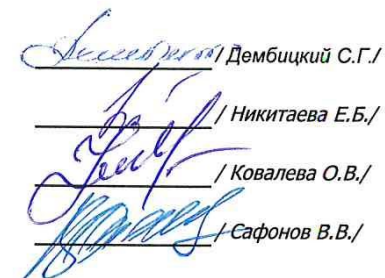 / Дембицкий С.Г./
/ Никитаева Е.Б./
/ Ковалева О.В./
/ Сафонов В.В./